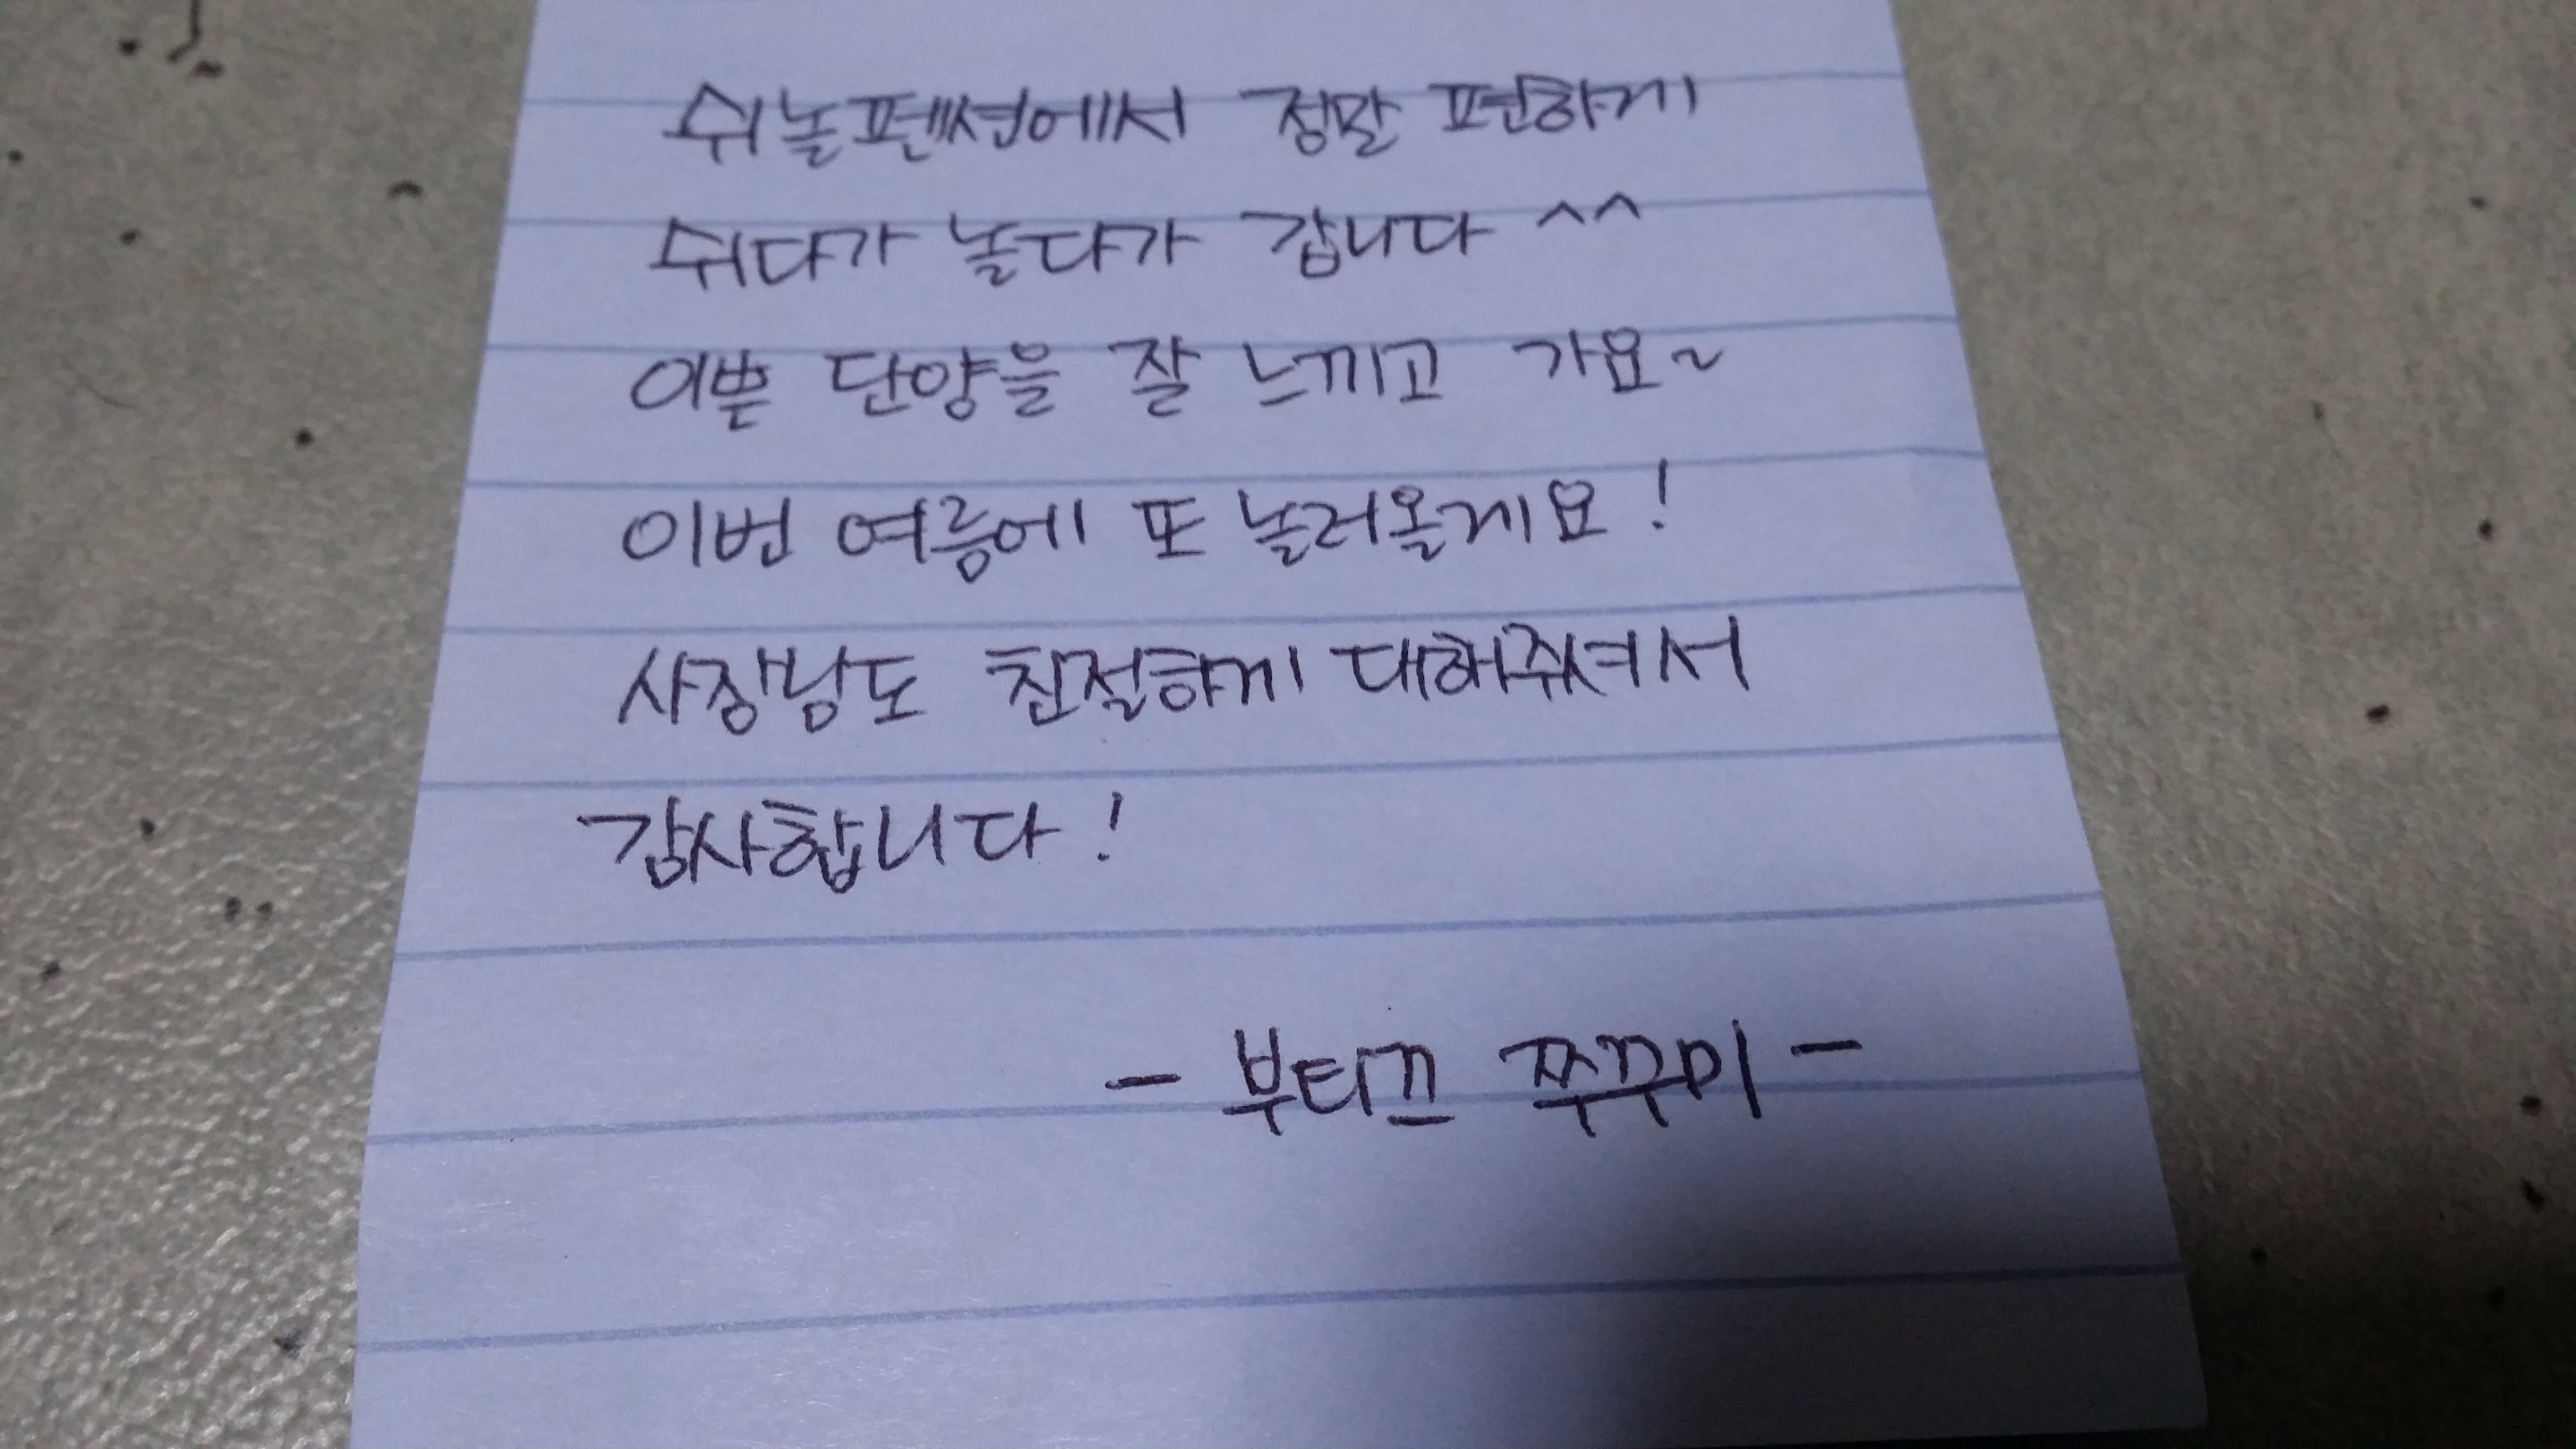 쉬놀펜션에서 정말 편하게
쉬다가 놀다가 갑니다 ^^
이쁜 단양을 잘 느끼고 가요~
이번 여름에 또 놀러올게요!
사장님도 친절하게 대해주셔서
감사합니다!
- 부티끄 쭈꾸미 -